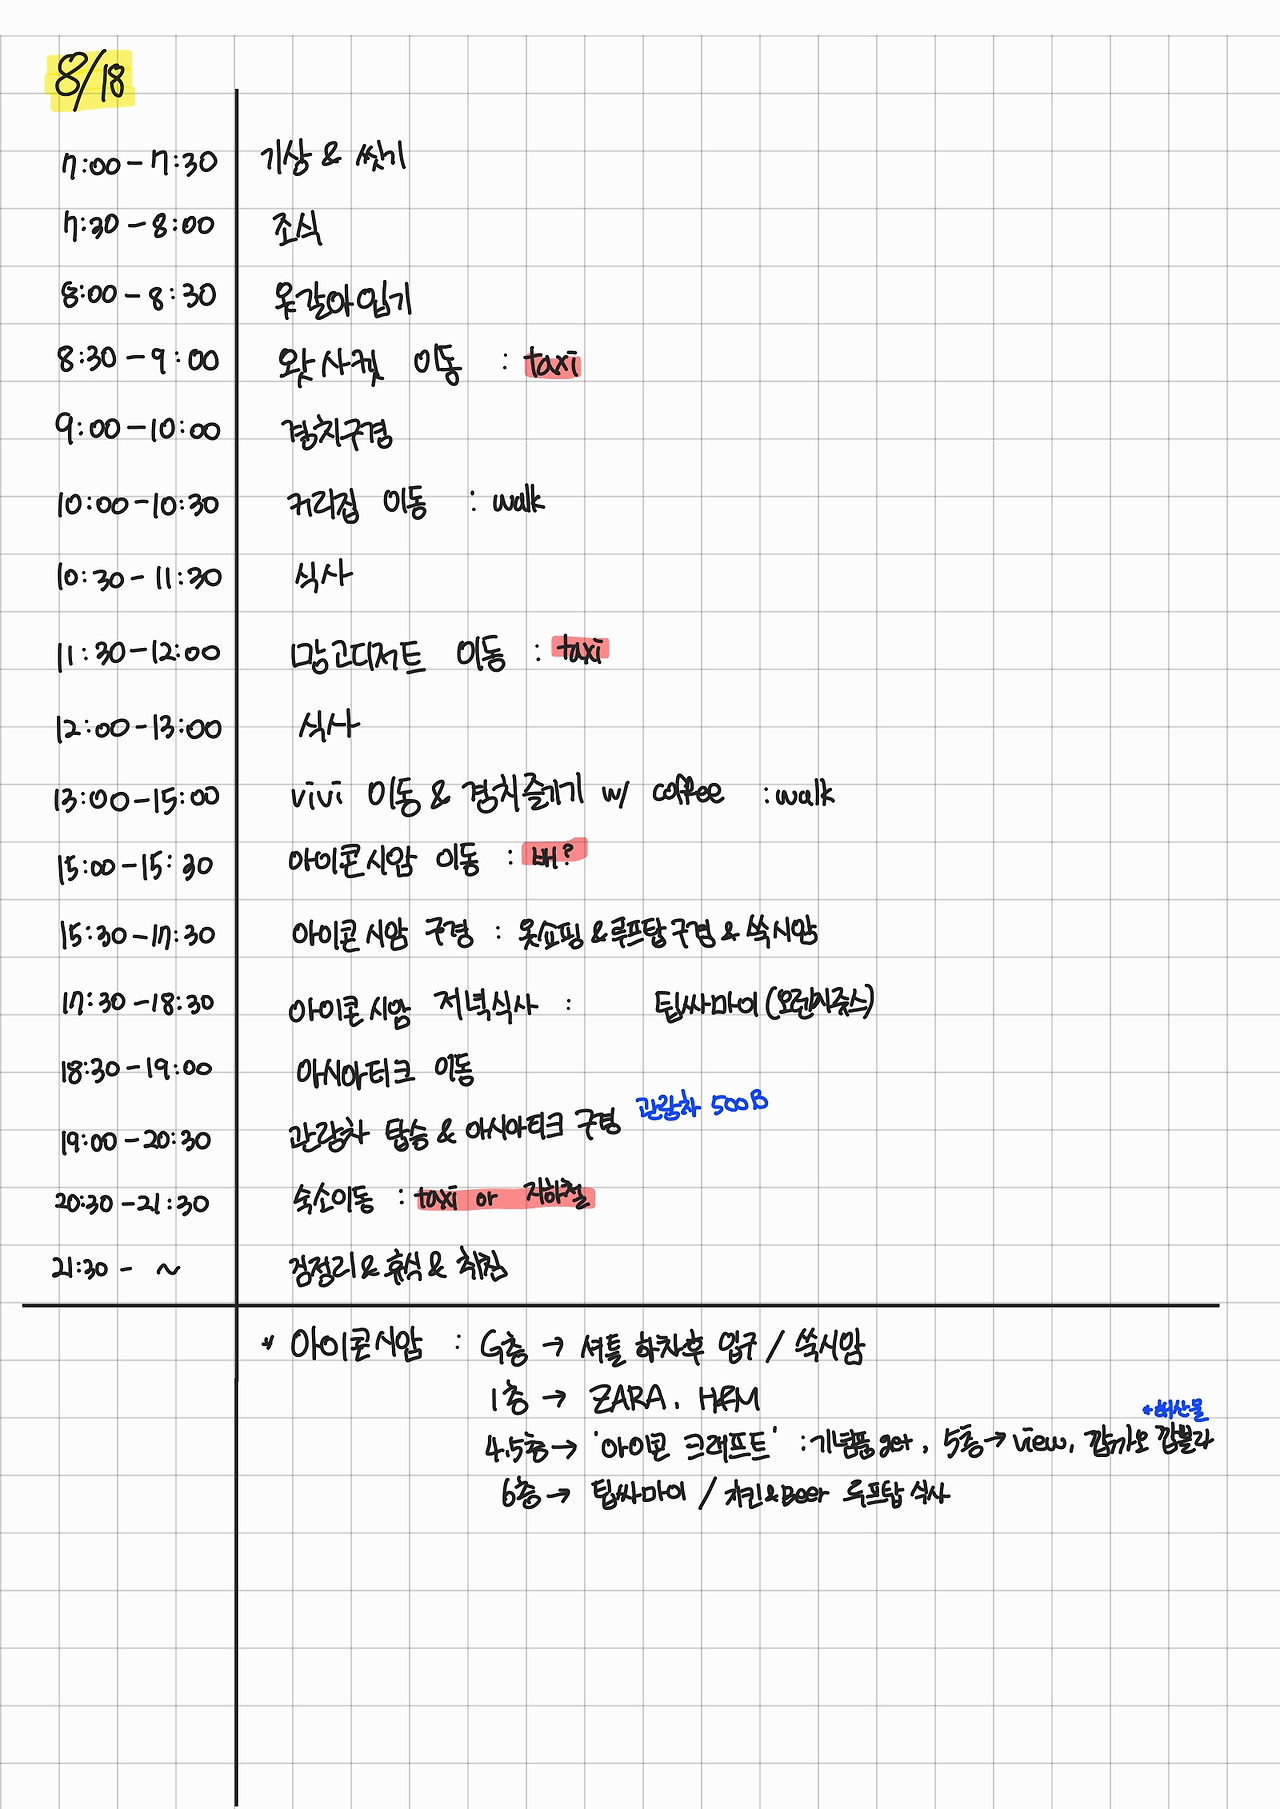 8/18
7:00-7:30 기상 & 씻기
7:30-8:00 조식
8:00-8:30 옷갈아입기
8:30-9:00 왓사켓 이동 : taxi
9:00-10:00 경치구경
10:00-10:30 커리집 이동 : walk
10:30-11:30 식사
11:30-12:00 망고디저트 이동 : taxi
12:00-13:00 식사
13:00-15:00 vivi 이동 & 경치즐기기 w/ coffee : walk
15:00-15:30 아이콘시암 이동 : 배?
15:30-17:30 아이콘시암 구경 : 옷쇼핑&루프탑구경&쑥시암
17:30-18:30 아이콘시암 저녁식사 : 팁싸마이(오렌지쥬스)
18:30-19:00 아시아티크 이동
관람차 500B
19:00-20:30 관람차 탑승 & 아시아티크 구경
20:30-21:30 숙소이동 : taxi or 지하철
21:30- ~ 짐정리&휴식&취침
* 아이콘시암 : G층 → 셔틀 하차후 입구 / 쑥시암
1층 → ZARA. H&M
*해산물
4.5층→ '아이콘 크래프트' : 기념품get, 5층→view, 깝카오 깝쁠라
6층→ 팁싸마이 / 치킨&Beer 루프탑 식사